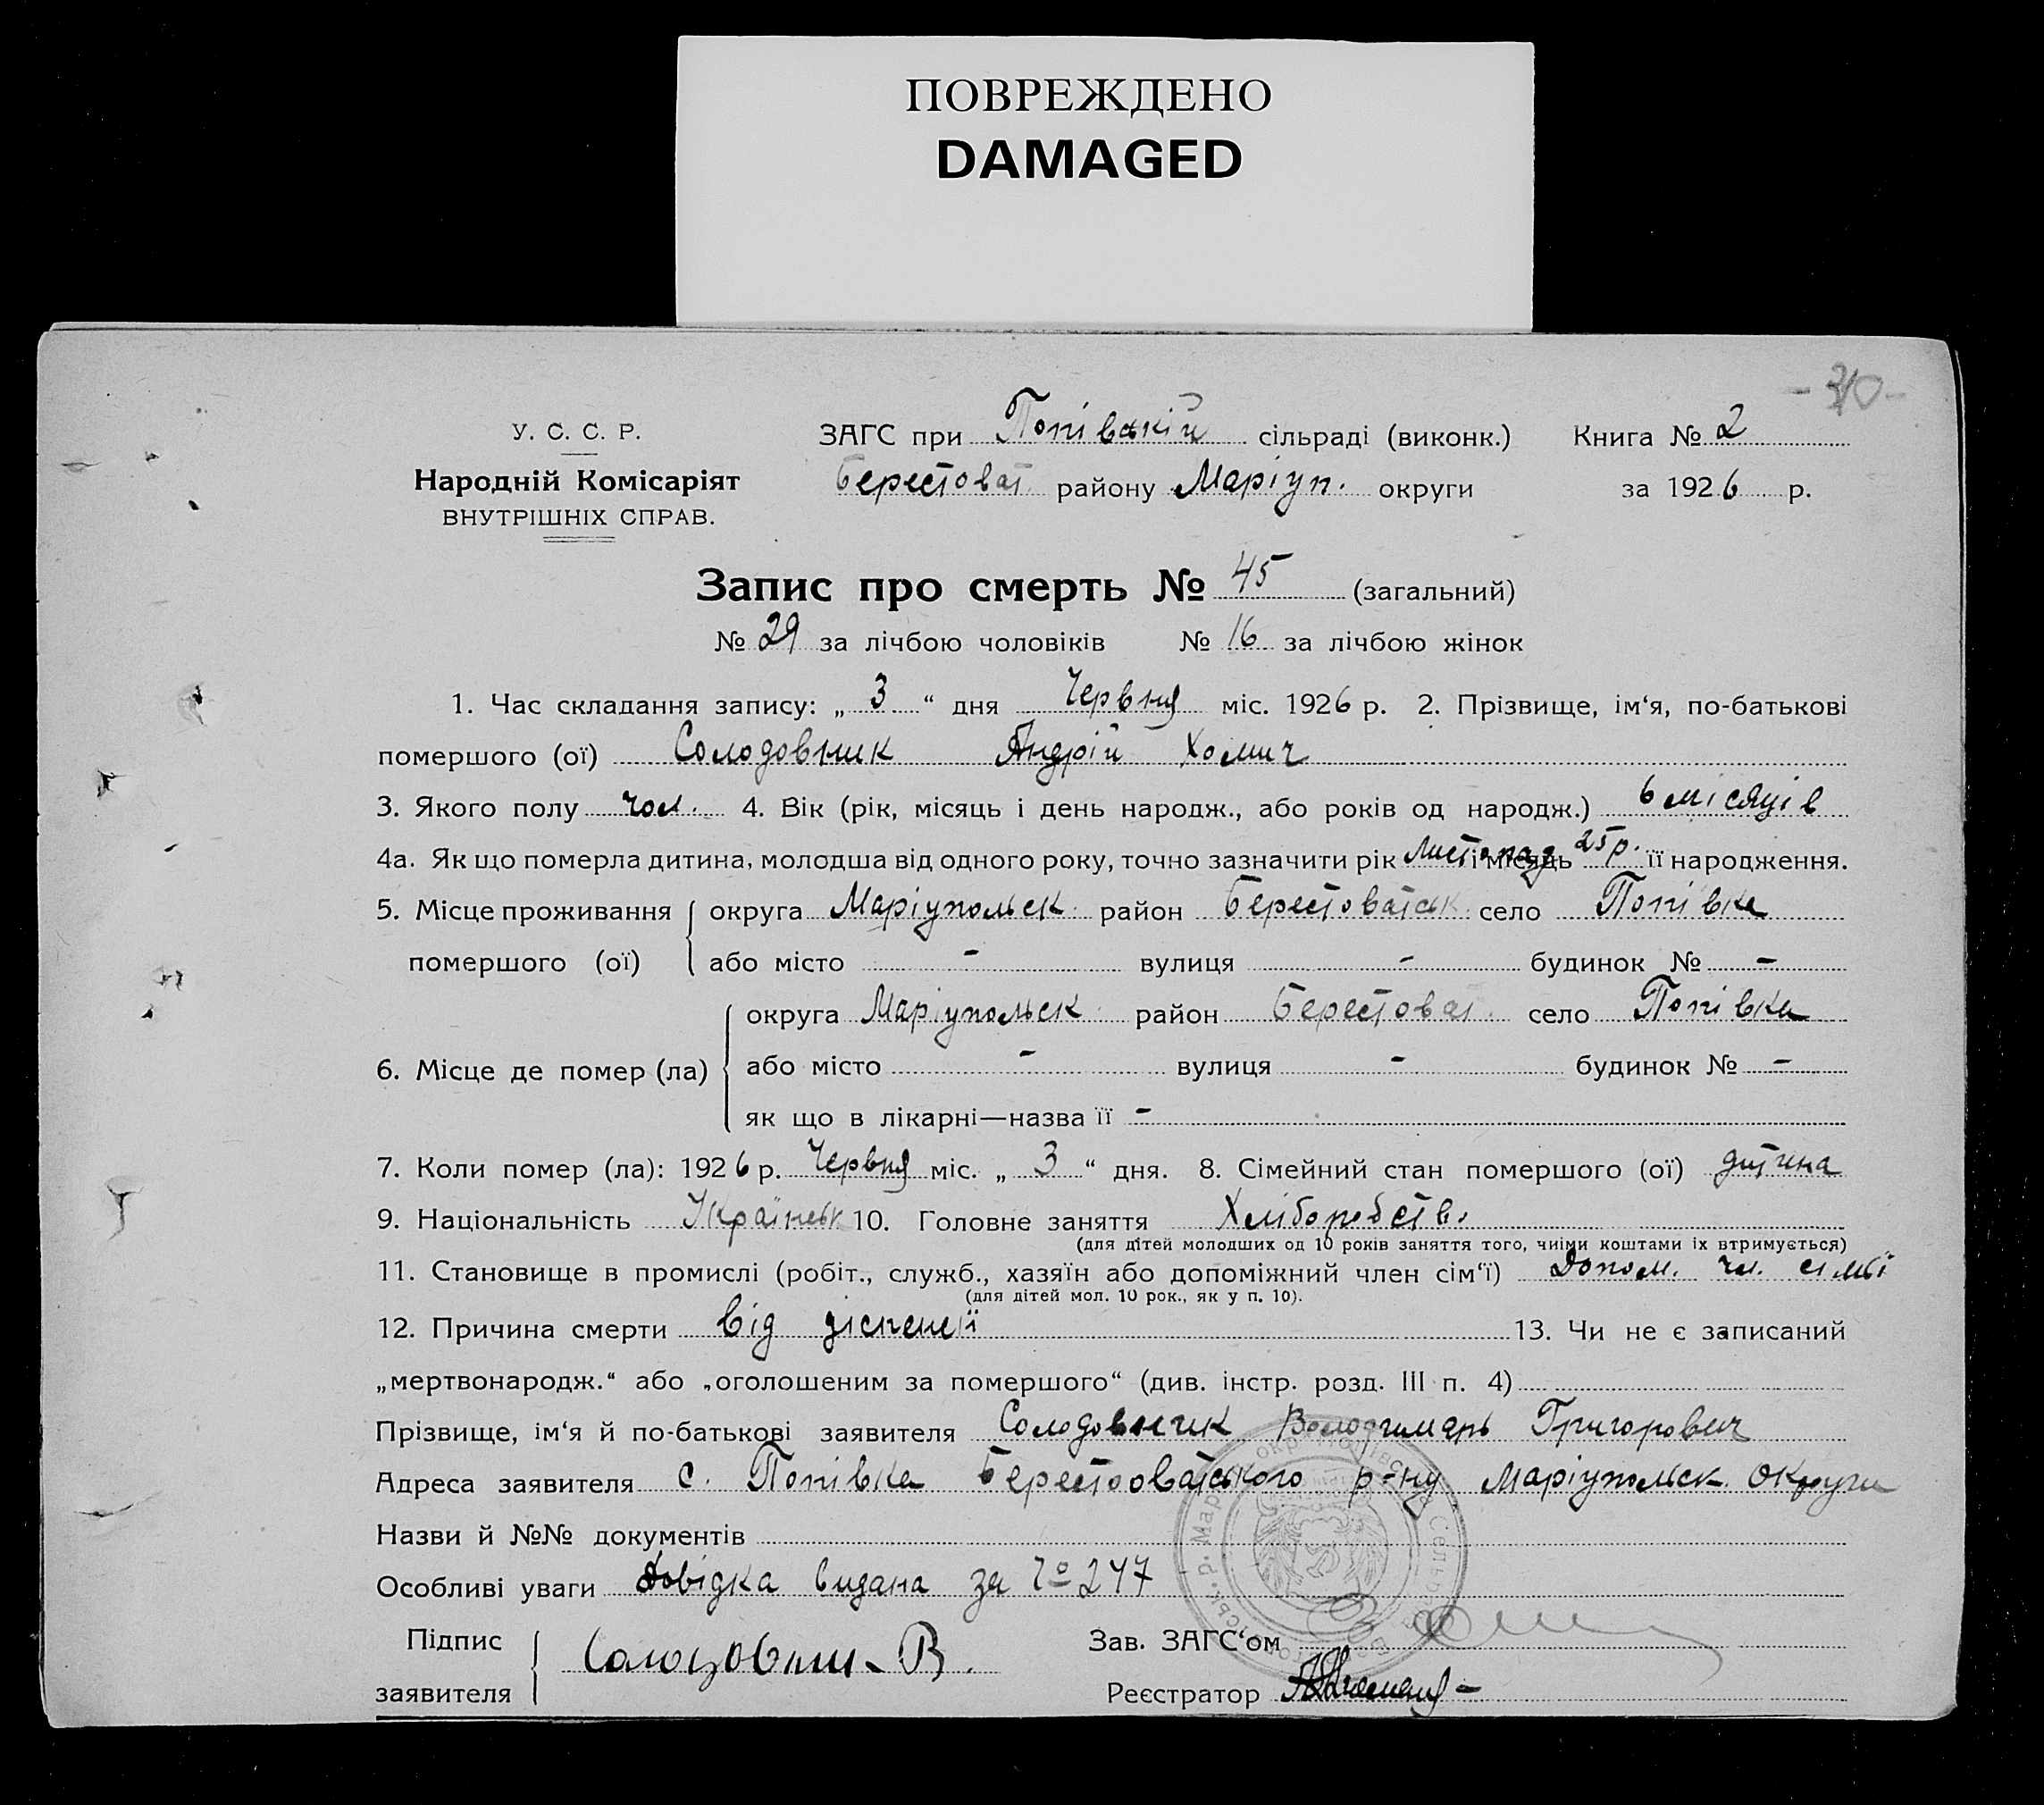 ПОВРЕЖДЕНО
DAMAGED
-30-
У. С. С. Р. ЗАГС при Попівській сільраді (виконк.) Книга № 2
Народній Комісаріят Берестоват. району Маріуп. округи за 1926 р.
ВНУТРІШНІХ СПРАВ.
Запис про смерть № 45 (загальний)
№ 29 за лічбою чоловіків № 16 за лічбою жінок
1. Час складання запису: „ 3 “ дня Червня міс. 1926 р. 2. Прізвище, ім‘я, по-батькові
помершого (ої) Солодовник Андрій Хомич
3. Якого полу чол. 4. Вік (рік, місяць і день народж., або років од народж.) 6 місяців
4а. Як що померла дитина, молодша від одного року, точно зазначити рік і місяць Листопад 25 р. її народження.
5. Місце проживання округа Маріупольск. район Берестоватськ. село Попівка
помершого (ої) або місто - вулиця - будинок № -
округа Маріупольск. район Берестоват. село Попівка
6. Місце де помер (ла) або місто - вулиця - будинок № -
як що в лікарні—назва її -
7. Коли помер (ла): 1926 р. Червня міс. „ 3 “ дня. 8. Сімейний стан помершого (ої) дитина
9. Національність Українськ 10. Головне заняття Хліборобство
(для дітей молодших од 10 років заняття того, чиїми коштами їх втримується)
11. Становище в промислі (робіт., служб., хазяїн або допоміжний член сім‘ї) Допом. чл. сімї
(для дітей мол. 10 рок., як у п. 10).
12. Причина смерти від 13. Чи не є записаний
„мертвонародж.“ або „оголошеним за помершого“ (див. інстр. розд. III п. 4)
Прізвище, ім‘я й по-батькові заявителя Солодовник Володимирь Григорович
Адреса заявителя с. Попівка Берестооватського р-ну Маріупольск. Округи
Назви й №№ документів
Особливі уваги Довідка видана за № 247
Підпис Солодовник В. Зав. ЗАГС‘ом
заявителя Реєстратор